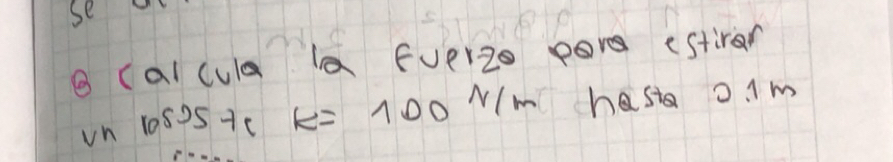 se
⑧ Calcula la fuerza para estirar
un k= 100 N/m hasta 0.1m